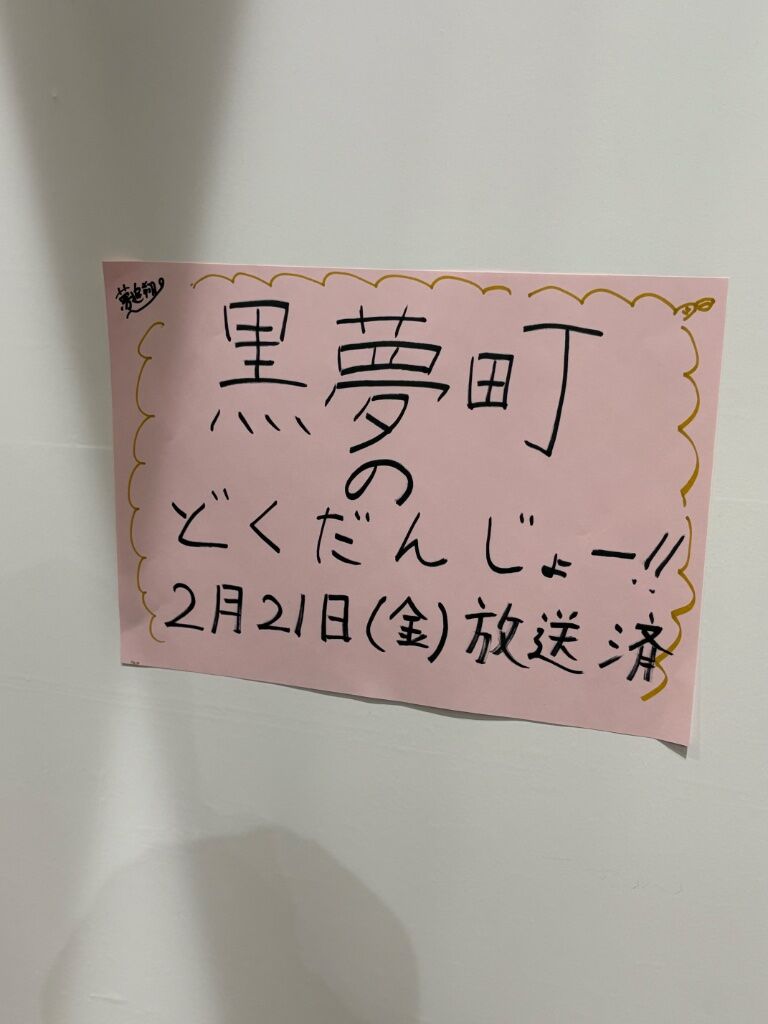 黒夢町
の
どくだんじょー!!
2月21日(金)放送済